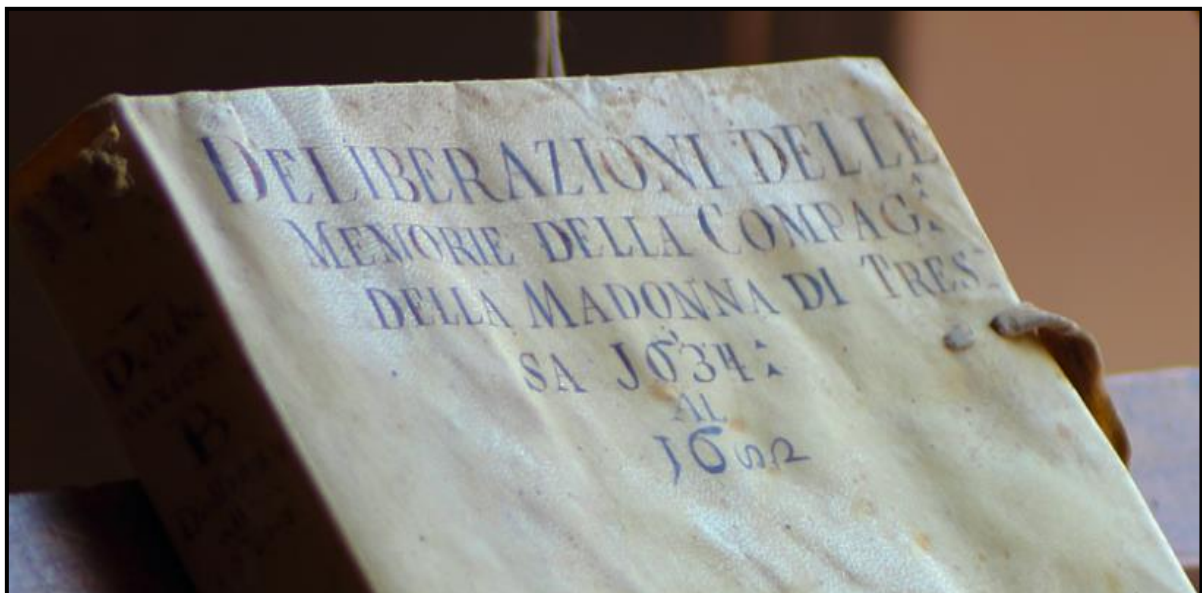 DELIBERAZIONI DELLE
MEMORIE DELLA COMPAG:
DELLA MADONNA DI TRES-
SA J634:
AL
B